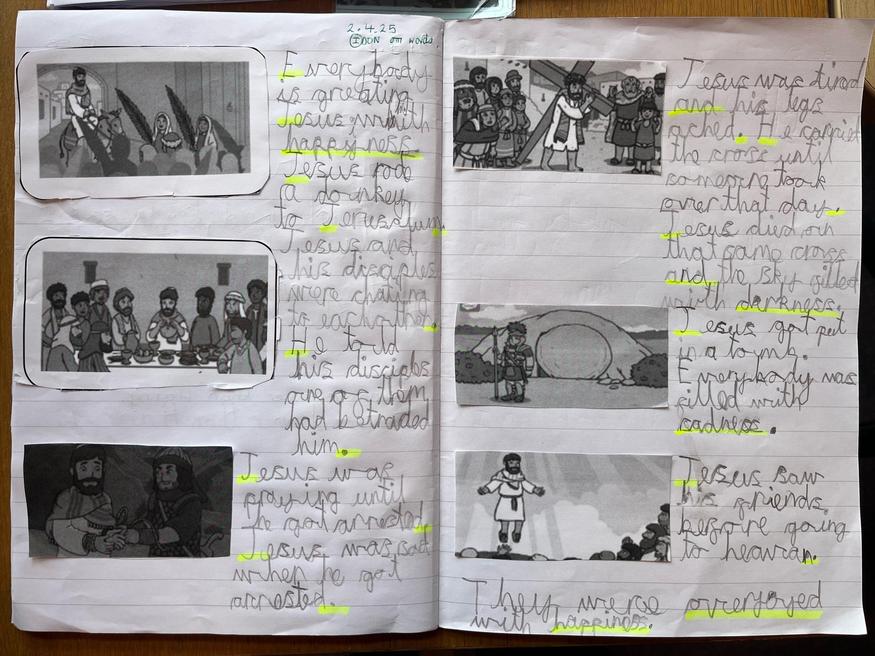 2.4.25
Everybody
is greating
Jesus whith
happyness
Jesus rode
a donkey
to Jerusalum.
Jesus and
his disciples
were chating
to each other.
He told
his disciples
one of them
had betraded
him.
Jesus was
praying until
he got arrested
Jesus was sad
when he got
arrested.
Jesus was tired
and his legs
ached. He carried
the cross until
someone took
over that day.
Jesus died on
that same cross
and the sky filled
with darkness.
Jesus got put
in a tomb.
Everybody was
filled with
sadness.
Jesus saw
his friends
before going
to heavan.
They were overjoyed
with happiness.